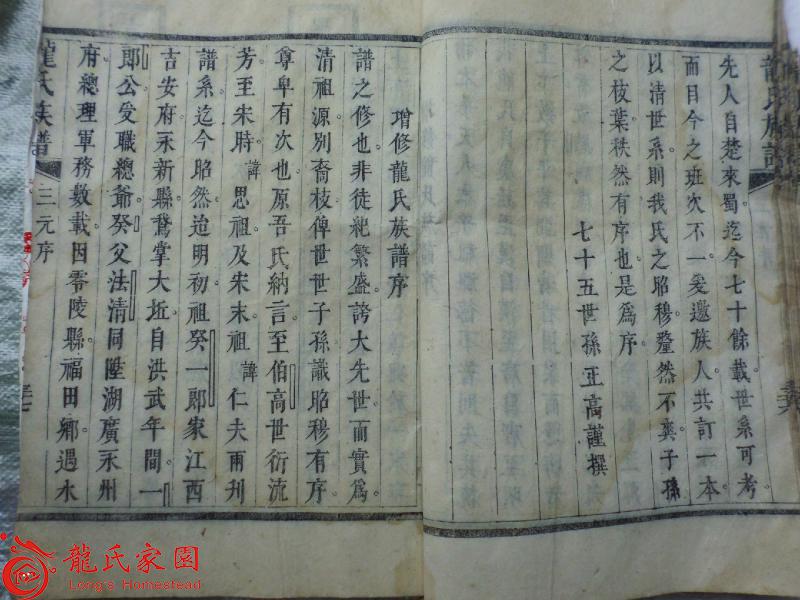 龍氏族譜
先人自楚來蜀迄今七十餘載世系可考
而目今之班次不一爰邀族人共訂一本
以清世系則我氏之昭穆釐然不紊子孫
之枝葉秩然有序也是為序
七十五世孫正高謹撰
增修龍氏族譜序
譜之修也非徒紀繁盛誇大先世而實為
清祖源別裔枝俾世世子孫識昭穆有序
尊卑有次也原吾氏納言至伯高世衍流
芳至宋時諱思祖及宋末祖諱仁夫兩刊
譜系迄今昭然迨明初祖癸一郎家江西
吉安府永新縣鵞掌大坵自洪武年間一
郎公受職總爺癸父法清同陞湖廣永州
府總理軍務數載因零陵縣福田鄉遇水
龍氏族譜
三元序
龍氏家園
Long's Homestead